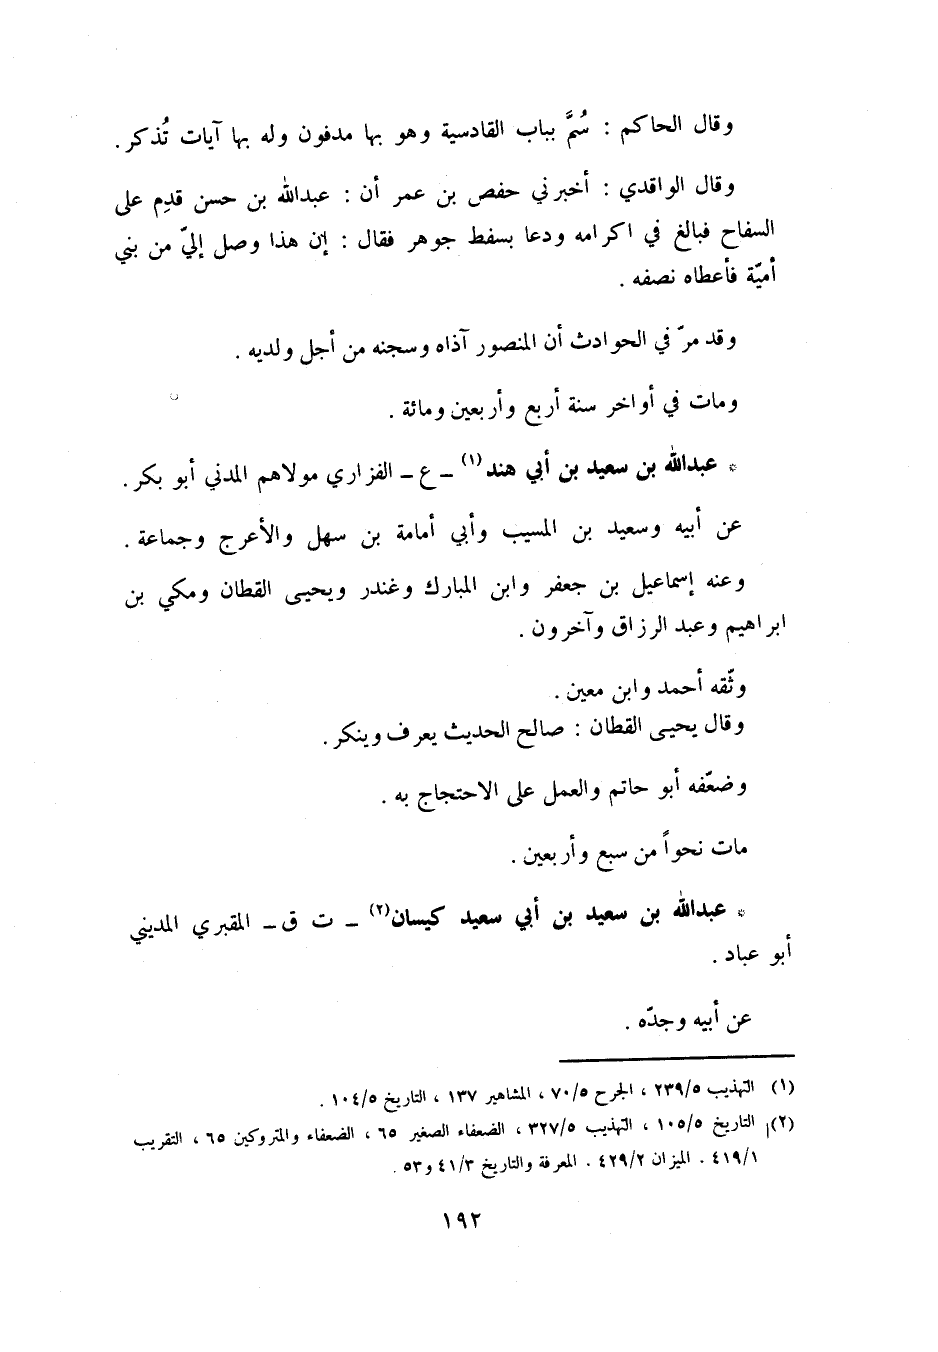 وقال الحاكم : سُمَّ بباب القادسية وهو بها مدفون وله بها آيات تُذكر .
وقال الواقدي : أخبرني حفص بن عمر أن : عبدالله بن حسن قدِم على
السفاح فبالغ في اكرامه ودعا بسفط جوهر فقال : إن هذا وصل إليّ من بني
أميّة فأعطاه نصفه .
وقد مرّ في الحوادث أن المنصور آذاه وسجنه من أجل ولديه .
ومات في أواخر سنة أربع وأربعين ومائة .
* عبدالله بن سعيد بن أبي هند(١) ـ ع ـ الفزاري مولاهم المدني أبو بكر .
عن أبيه وسعيد بن المسيب وأبي أمامة بن سهل والأعرج وجماعة .
وعنه إسماعيل بن جعفر وابن المبارك وغندر ويحيى القطان ومكي بن
ابراهيم وعبد الرزاق وآخرون .
وثّقه أحمد وابن معين .
وقال يحيى القطان : صالح الحديث يعرف وينكر .
وضعّفه أبو حاتم والعمل على الاحتجاج به .
مات نحواً من سبع وأربعين .
* عبدالله بن سعيد بن أبي سعيد كيسان(٢) ـ ت ق ـ المقبري المديني
أبو عباد .
عن أبيه وجدّه .
(١) التهذيب ٢٣٩/٥ ، الجرح ٧٠/٥ ، المشاهير ١٣٧ ، التاريخ ١٠٤/٥ .
(٢) التاريخ ١٠٥/٥ ، التهذيب ٣٢٧/٥ ، الضعفاء الصغير ٦٥ ، الضعفاء والمتروكين ٦٥ ، التقريب
٤١٩/١ . الميزان ٤٢٩/٢ . المعرفة والتاريخ ٤١/٣ و٥٣ .
١٩٢